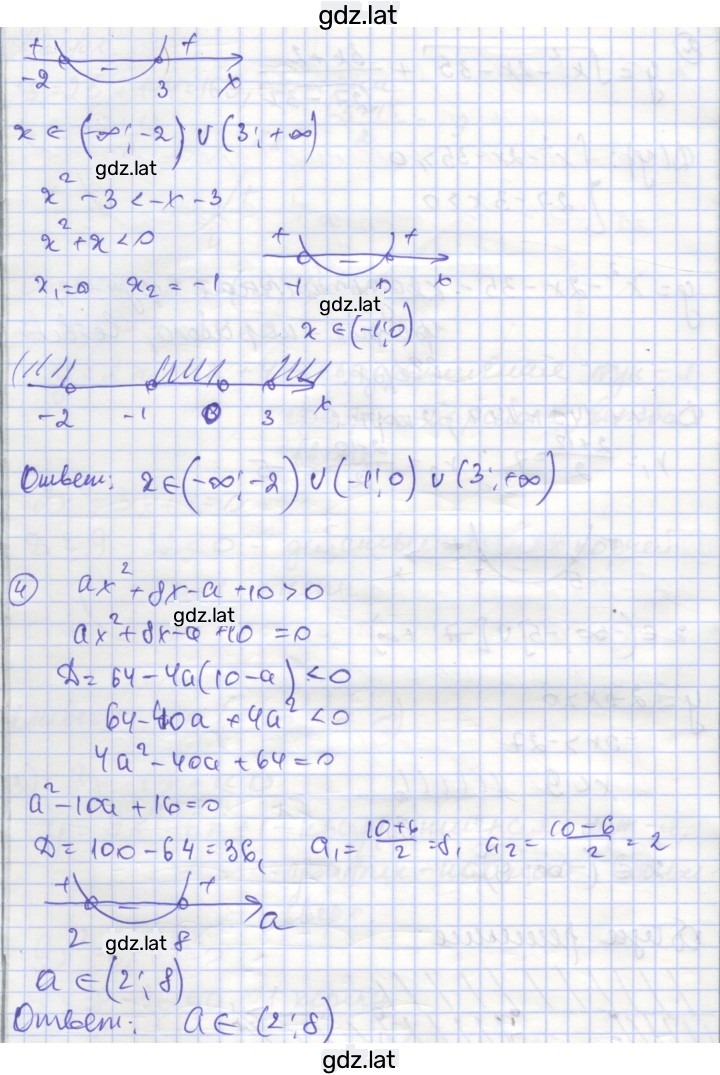 gdz.lat
+ − +
-2 3 x
x ∈ (-∞; -2) ∪ (3; +∞)
gdz.lat
x² - 3 < -x - 3
x² + x < 0
x₁ = 0 x₂ = -1
+ − +
-1 0 x
gdz.lat
x ∈ (-1; 0)
-2 -1 0 3 x
Ответ: x ∈ (-∞; -2) ∪ (-1; 0) ∪ (3; +∞)
④ ax² + 8x - a + 10 > 0
gdz.lat
ax² + 8x - a + 10 = 0
Д = 64 - 4a(10 - a) < 0
64 - 40a + 4a² < 0
4a² - 40a + 64 = 0
a² - 10a + 16 = 0
Д = 100 - 64 = 36, a₁ = (10+6)/2 = 8, a₂ = (10-6)/2 = 2
+ − +
2 8 a
gdz.lat
a ∈ (2; 8)
Ответ: a ∈ (2; 8)
gdz.lat